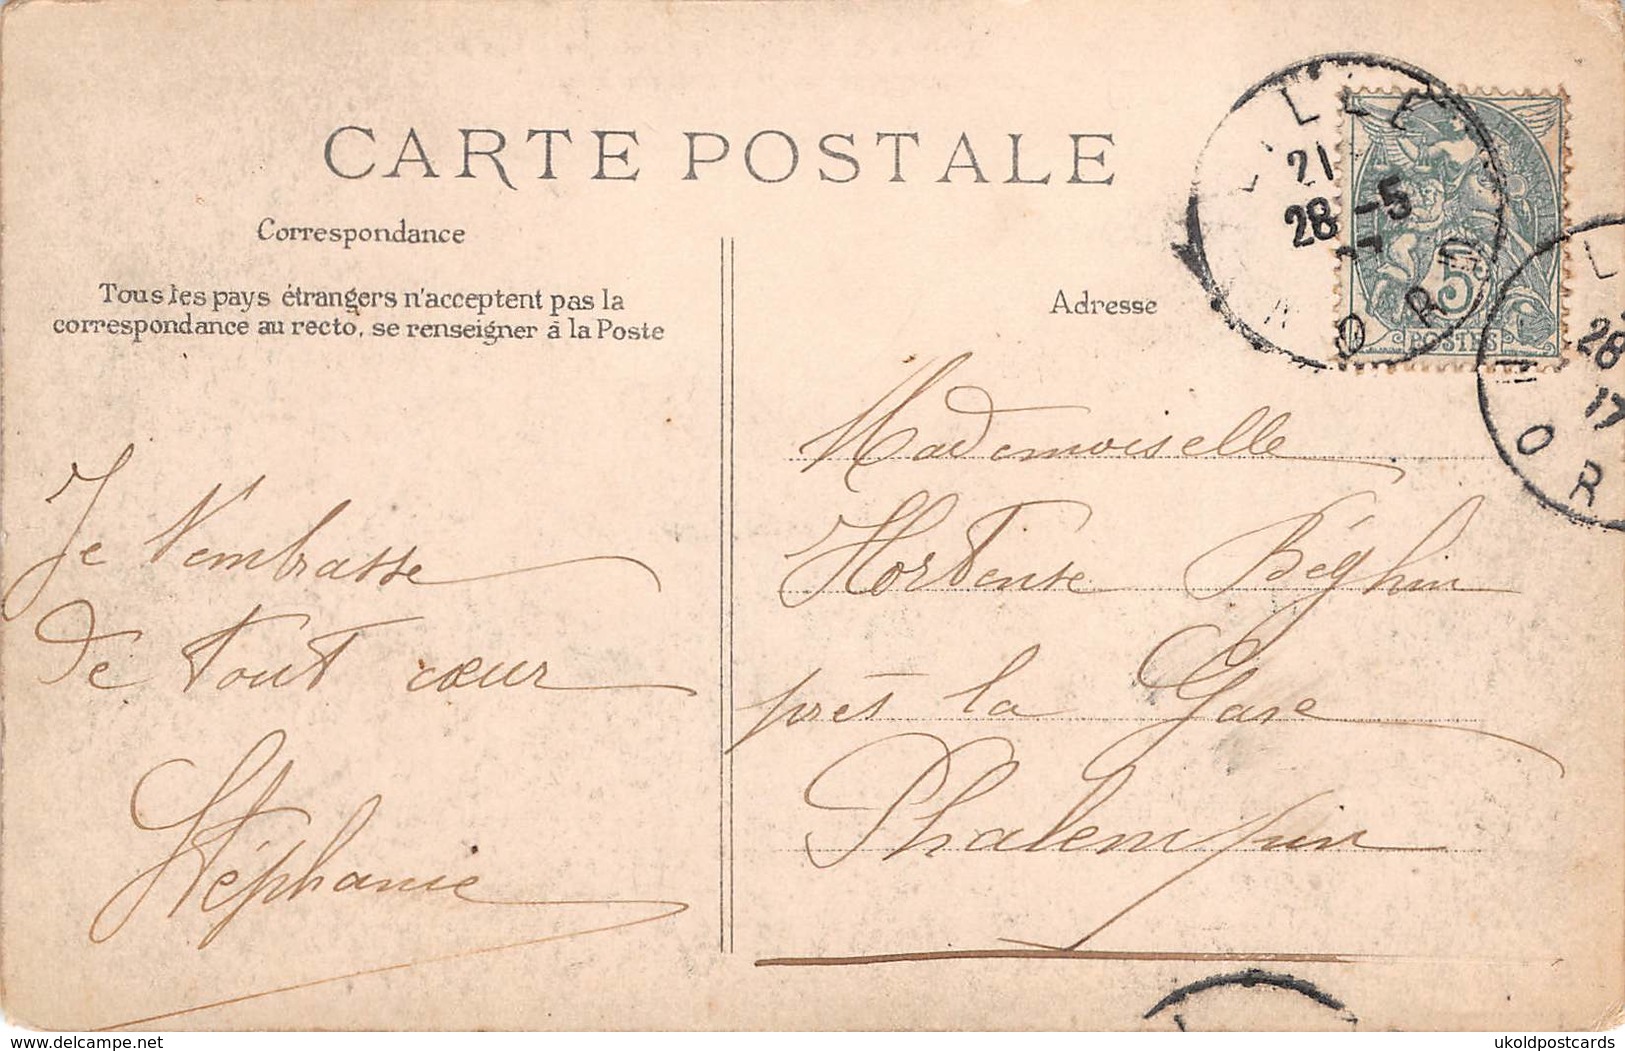 CARTE POSTALE
Correspondance
Tous les pays étrangers n'acceptent pas la
correspondance au recto, se renseigner à la Poste
Je t'embrasse
de tout cœur
Stéphanie
Adresse
Mademoiselle
Hortense Béghin
près la Gare
Phalempin
LILLE
21
28 -5
NORD
5
POSTES
L
28
17
NOR
delcampe.net
ukoldpostcards